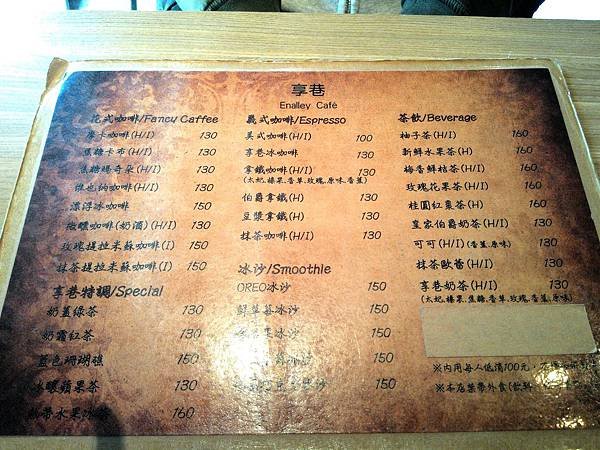 享巷
Enalley Café
花式咖啡/Fancy Caffee
摩卡咖啡(H/I) 130
焦糖卡布(H/I) 130
焦糖瑪奇朵(H/I) 130
維也納咖啡(H/I) 130
漂浮冰咖啡 150
咖啡(奶酒)(H/I) 130
玫瑰提拉米蘇咖啡(I) 150
抹茶提拉米蘇咖啡(I) 150
享巷特調/Special
奶蓋綠茶 130
奶霜紅茶 130
藍色珊瑚礁 150
冰釀蘋果茶 130
熱帶水果冰茶 160
義式咖啡/Espresso
美式咖啡(H/I) 100
享巷冰咖啡 130
拿鐵咖啡(H/I) 130
(太妃.榛果.香草.玫瑰.原味.香蕉)
伯爵拿鐵(H) 130
豆漿拿鐵(H) 130
抹茶咖啡(H/I) 130
冰沙/Smoothie
OREO冰沙 150
鮮草莓冰沙 150
果冰沙 150
冰沙 150
沙 150
茶飲/Beverage
柚子茶(H/I) 160
新鮮水果茶(H) 160
梅香鮮桔茶(H/I) 160
玫瑰花果茶(H/I) 160
桂圓紅棗茶(H) 160
皇家伯爵奶茶(H/I) 130
可可(H/I)(香蕉.原味) 130
抹茶歐蕾(H/I) 130
享巷奶茶(H/I) 130
(太妃.榛果.焦糖.香草.玫瑰.香蕉.原味)
※內用每人低消100元,
※本店禁帶外食(飲料